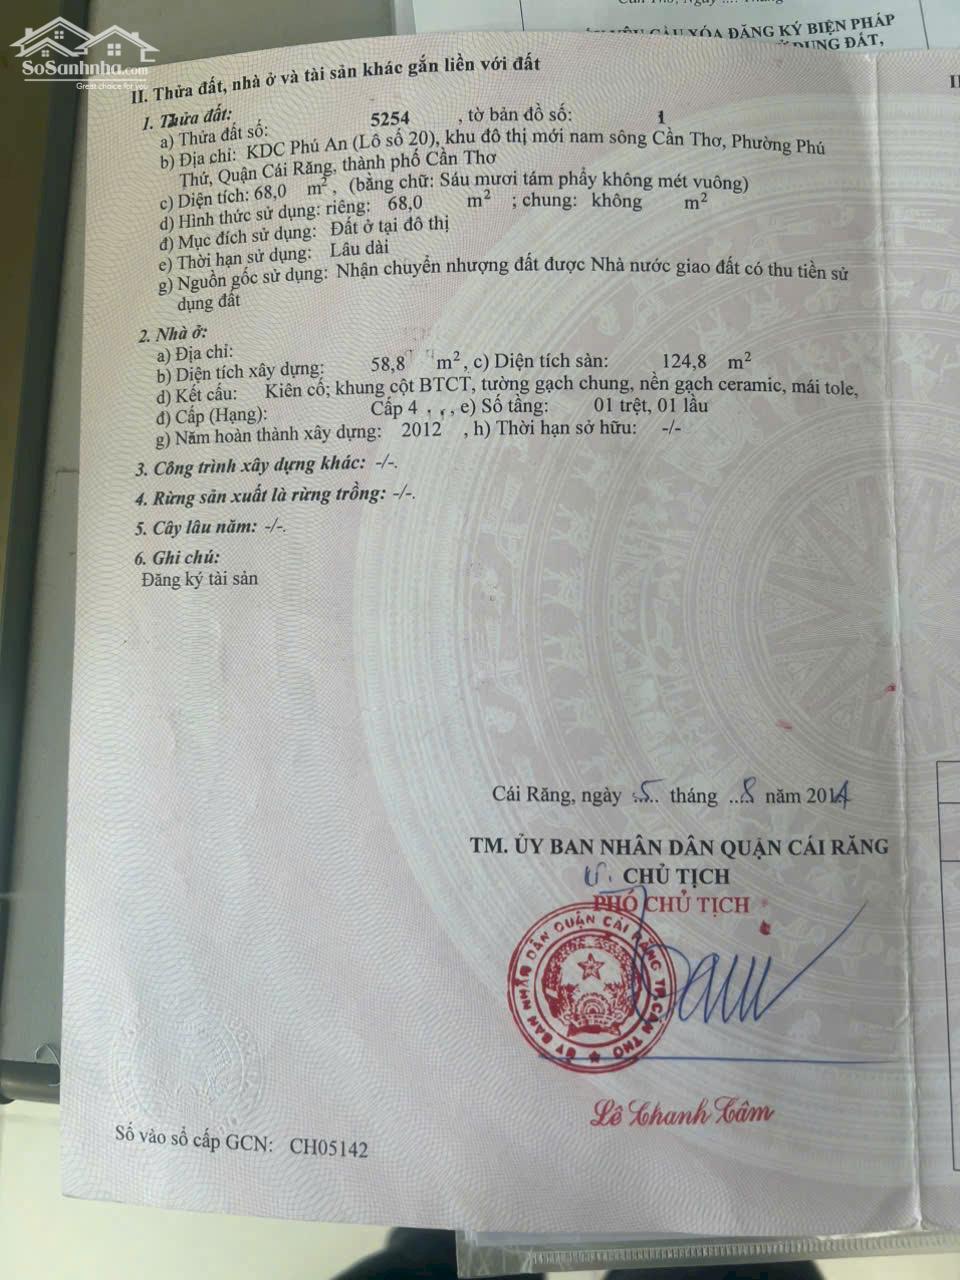 Cần Thơ, Ngày .... Tháng
YÊU CẦU XÓA ĐĂNG KÝ BIỆN PHÁP
DỤNG ĐẤT,
SoSanhnha.com
Great choice for you
II. Thửa đất, nhà ở và tài sản khác gắn liền với đất
1. Thửa đất:
a) Thửa đất số: 5254 , tờ bản đồ số: 1
b) Địa chỉ: KDC Phú An (Lô số 20), khu đô thị mới nam sông Cần Thơ, Phường Phú
Thứ, Quận Cái Răng, thành phố Cần Thơ
c) Diện tích: 68,0 m², (bằng chữ: Sáu mươi tám phẩy không mét vuông)
d) Hình thức sử dụng: riêng: 68,0 m² ; chung: không m²
đ) Mục đích sử dụng: Đất ở tại đô thị
e) Thời hạn sử dụng: Lâu dài
g) Nguồn gốc sử dụng: Nhận chuyển nhượng đất được Nhà nước giao đất có thu tiền sử
dụng đất
2. Nhà ở:
a) Địa chỉ:
b) Diện tích xây dựng: 58,8 m², c) Diện tích sàn: 124,8 m²
d) Kết cấu: Kiên cố; khung cột BTCT, tường gạch chung, nền gạch ceramic, mái tole,
đ) Cấp (Hạng): Cấp 4 , e) Số tầng: 01 trệt, 01 lầu
g) Năm hoàn thành xây dựng: 2012 , h) Thời hạn sở hữu: -/-
3. Công trình xây dựng khác: -/-.
4. Rừng sản xuất là rừng trồng: -/-.
5. Cây lâu năm: -/-.
6. Ghi chú:
Đăng ký tài sản
Cái Răng, ngày 5 tháng 8 năm 2014
TM. ỦY BAN NHÂN DÂN QUẬN CÁI RĂNG
CHỦ TỊCH
PHÓ CHỦ TỊCH
ỦY BAN NHÂN DÂN QUẬN CÁI RĂNG TP. CẦN THƠ
Lê Thanh Tâm
Số vào sổ cấp GCN: CH05142